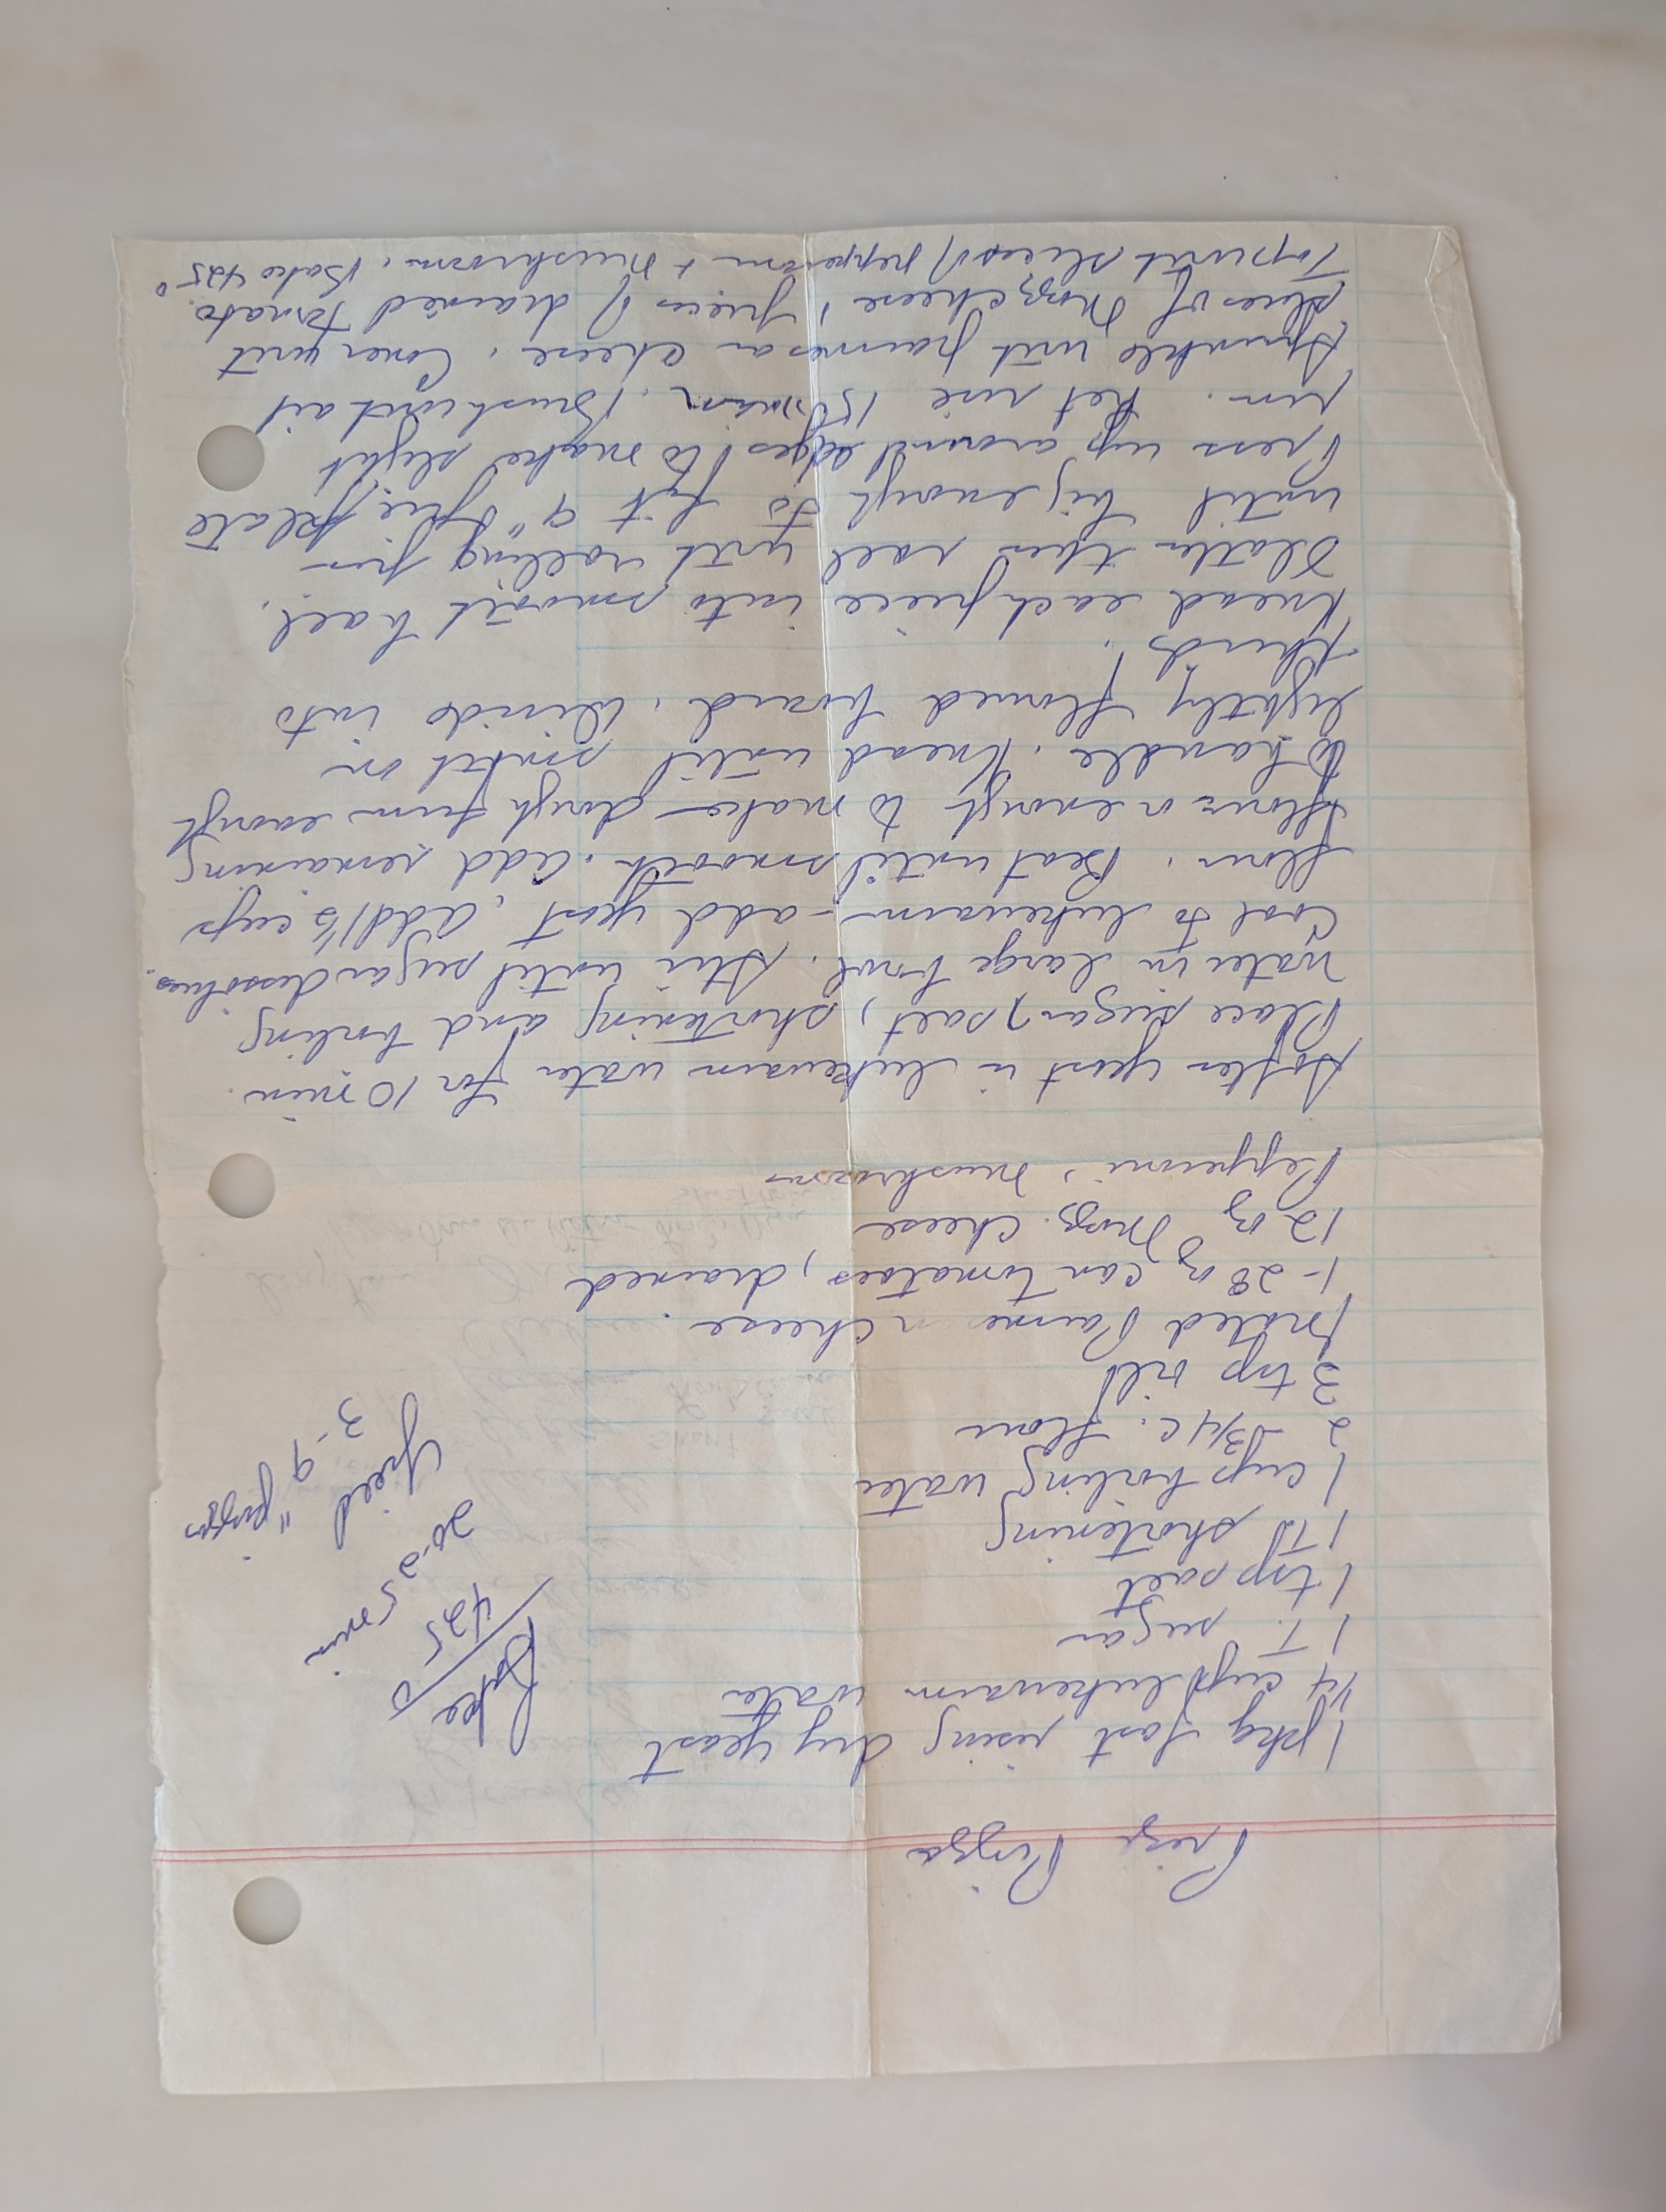 Prize Pizza
1 pkg fast rising dry yeast
1/4 cup lukewarm water
1 T. sugar
1 tsp salt
1 Tb shortening
1 cup boiling water
2 3/4 c. flour
3 tsp oil
grated Parmesan cheese.
1-28 oz can tomatoes, drained
12 oz Mozz. cheese
Pepperoni, mushrooms
Bake
425°
20-25 min
Yield
3-9" pizzas
Soften yeast in lukewarm water for 10 min.
Place sugar, salt, shortening and boiling
water in large bowl. Stir until sugar dissolves.
Cool to lukewarm - add yeast. Add 1 1/2 cups
flour. Beat until smooth. Add remaining
flour or enough to make dough firm enough
to handle. Knead until smooth on
lightly floured board. Divide into
thirds.
Knead each piece into smooth ball.
Flatten then roll with rolling pin
until big enough to fit 9" pie plate
Press up around edges to make slight
rim. Let rise 15 min. Brush with oil
Sprinkle with parmesan cheese. Cover with
slices of Mozz cheese, pieces of drained tomato.
Top with slices of pepperoni + mushrooms. Bake 425°